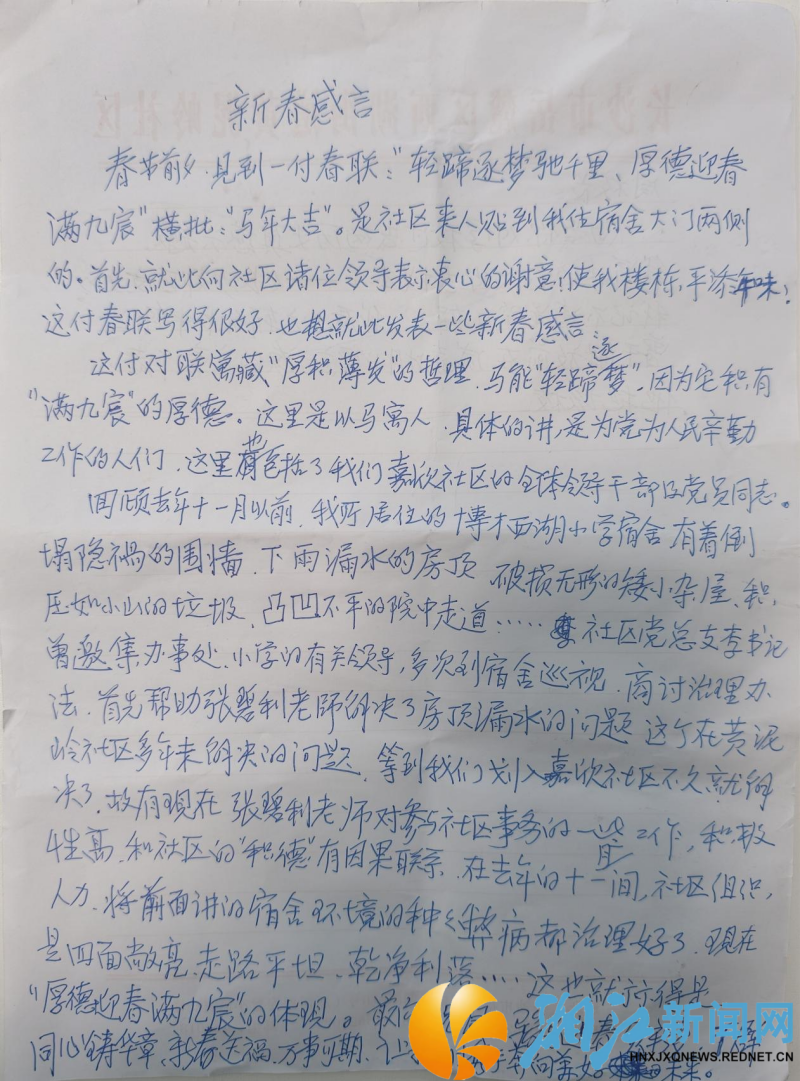 新春感言
春节前夕.见到一付春联："轻蹄逐梦驰千里、厚德迎春
满九宸"横批："马年大吉"。是社区来人贴到我住宿舍大门两侧
的。首先.就此向社区诸位领导表示衷心的谢意,使我楼栋,平添年味;
这付春联写得很好.也想就此发表一些新春感言:
这付对联寓藏"厚积薄发"的哲理.马能"轻蹄逐梦".因为它积有
"满九宸"的厚德。这里是以马寓人.具体的讲,是为党为人民辛勤
工作的人们.这里也包括了我们嘉欣社区的全体领导干部及党员同志。
回顾去年十一月以前.我所居住的博才西湖小学宿舍有着倒
塌隐祸的围墙.下雨漏水的房顶 破损无形的矮小杂屋、积,
压如小山的垃圾.凸凹不平的院中走道…… 社区党总支李书记
曾邀集办事处.小学的有关领导,多次到宿舍巡视.商讨治理办
法.首先帮助张碧利老师解决了房顶漏水的问题 这个在黄泥
岭社区多年未解决的问题.等到我们划入嘉欣社区不久就解
决了.故有现在张碧利老师对参与社区事务的一些工作,积极
性高.和社区的"积德"有因果联系.在去年的十一月间,社区组织,
人力.将前面讲的宿舍环境的种种弊病都治理好了.现在
是四面敞亮.走路平坦、乾净利落……这也就
"厚德迎春满九宸"的体现。最
同心铸华章.新春送福.万事可期.向美好 未来。
湘江新闻网
HNXJXQNEWS.REDNET.CN